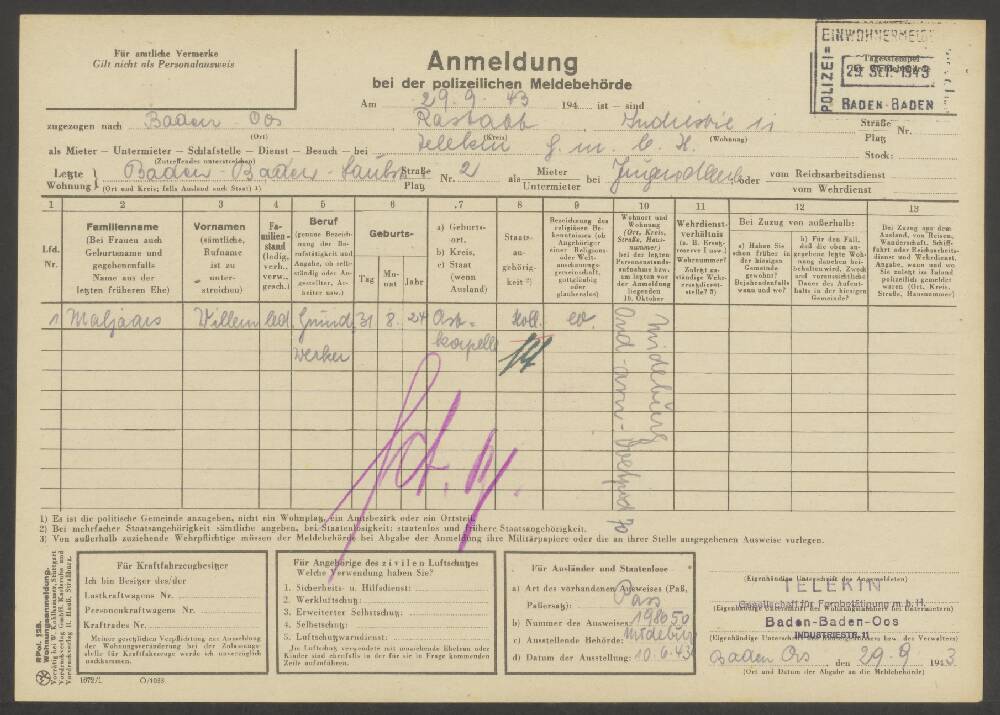 Für amtliche Vermerke
Gilt nicht als Personalausweis
Anmeldung
bei der polizeilichen Meldebehörde
POLIZEI=
EINWOHNERMELD
Tagesstempel
der Meldebehörde
29. SEP. 1943
BADEN-BADEN
Am 29. 9. 43 194 ist – sind
zugezogen nach Baden Oos Rastatt Industrie 11 Straße Platz Nr.
(Ort) (Kreis) (Wohnung)
als Mieter – Untermieter – Schlafstelle – Dienst – Besuch – bei Telekin G. m. b. H. Stock:
(Zutreffendes unterstreichen)
Letzte Wohnung } Baden-Baden - Straße Platz Nr. 2 als Mieter Untermieter bei oder vom Reichsarbeitsdienst
vom Wehrdienst
(Ort und Kreis; falls Ausland auch Staat) 1)
1 2 3 4 5 6 7 8 9 10 11 12 13
Lfd. Nr.
Familienname (Bei Frauen auch Geburtsname und gegebenenfalls Name aus der letzten früheren Ehe)
Vornamen (sämtliche, Rufname ist zu unterstreichen)
Familienstand (ledig, verh., verw., gesch.)
Beruf (genaue Bezeichnung der Berufstätigkeit und Angabe, ob selbständig oder Angestellter, Arbeiter usw.)
Geburts-
Tag Monat Jahr
a) Geburtsort, b) Kreis, c) Staat (wenn Ausland)
Staatsangehörigkeit 2)
Bezeichnung des religiösen Bekenntnisses (ob Angehöriger einer Religions- oder Weltanschauungsgemeinschaft, gottgläubig oder glaubenslos)
Wohnort und Wohnung (Ort, Kreis, Straße, Hausnummer) bei der letzten Personenstandsaufnahme bzw. am letzten vor der Anmeldung liegenden 10. Oktober
Wehrdienstverhältnis (z. B. Ersatzreserve I usw.) Wehrnummer? Zulegt zuständige Wehrersatzdienststelle? 3)
Bei Zuzug von außerhalb:
a) Haben Sie schon früher in der hiesigen Gemeinde gewohnt? Bejahendenfalls wann und wo?
b) Für den Fall, daß die oben angegebene letzte Wohnung daneben beibehalten wird. Zweck und voraussichtliche Dauer des Aufenthalts in der hiesigen Gemeinde?
Bei Zuzug aus dem Ausland, von Reisen, Wanderschaft, Schifffahrt oder Reichsarbeitsdienst und Wehrdienst. Angabe, wann und wo Sie zuletzt im Inland polizeilich gemeldet waren (Ort, Kreis, Straße, Hausnummer)
1 Maljaars Willem led. Grund 31 8. 24 Ost- holl. ev.
werker kapelle
1) Es ist die politische Gemeinde anzugeben, nicht ein Wohnplatz, ein Amtsbezirk oder ein Ortsteil.
2) Bei mehrfacher Staatsangehörigkeit sämtliche angeben, bei Staatenlosigkeit: staatenlos und frühere Staatsangehörigkeit.
3) Von außerhalb zuziehende Wehrpflichtige müssen der Meldebehörde bei Abgabe der Anmeldung ihre Militärpapiere oder die an ihrer Stelle ausgegebenen Ausweise vorlegen.
RPol. 15B. Wohnungsanmeldung.
Für Kraftfahrzeugbesitzer
Ich bin Besitzer des/der
Lastkraftwagens Nr.
Personenkraftwagens Nr.
Kraftrades Nr.
Meiner gesetzlichen Verpflichtung zur Anmeldung der Wohnungsveränderung bei der Zulassungsstelle für Kraftfahrzeuge werde ich unverzüglich nachkommen.
1672/1. O/1088
Für Angehörige des zivilen Luftschutzes
Welche Verwendung haben Sie?
1. Sicherheits- u. Hilfsdienst:
2. Werkluftschutz:
3. Erweiterter Selbstschutz:
4. Selbstschutz:
5. Luftschutzwarndienst:
Im Luftschutz verwendete mit umziehende Ehefrau oder Kinder ebenfalls in der für sie in Frage kommenden Zeile aufzuführen.
Für Ausländer und Staatenlose
a) Art des vorhandenen Ausweises (Paß, Paßersatz): Pass
b) Nummer des Ausweises: 198050
c) Ausstellende Behörde:
d) Datum der Ausstellung: 10.6.43
(Eigenhändige Unterschrift des Anmeldenden)
TELEKIN
Gesellschaft für Fernbetätigung m. b. H.
Baden-Baden-Oos
INDUSTRIESTR. 11
Baden Oos den 29.9 1943
(Ort und Datum der Abgabe an die Meldebehörde)